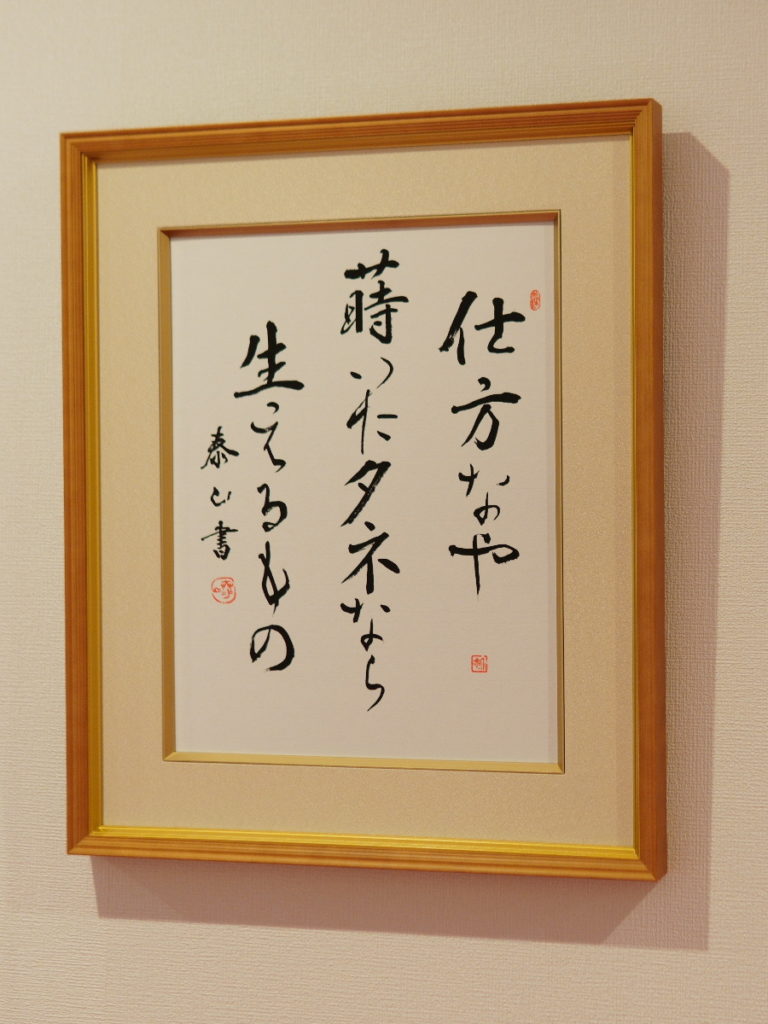 仕方なや
蒔いたタネなら
生こえるもの
泰山書